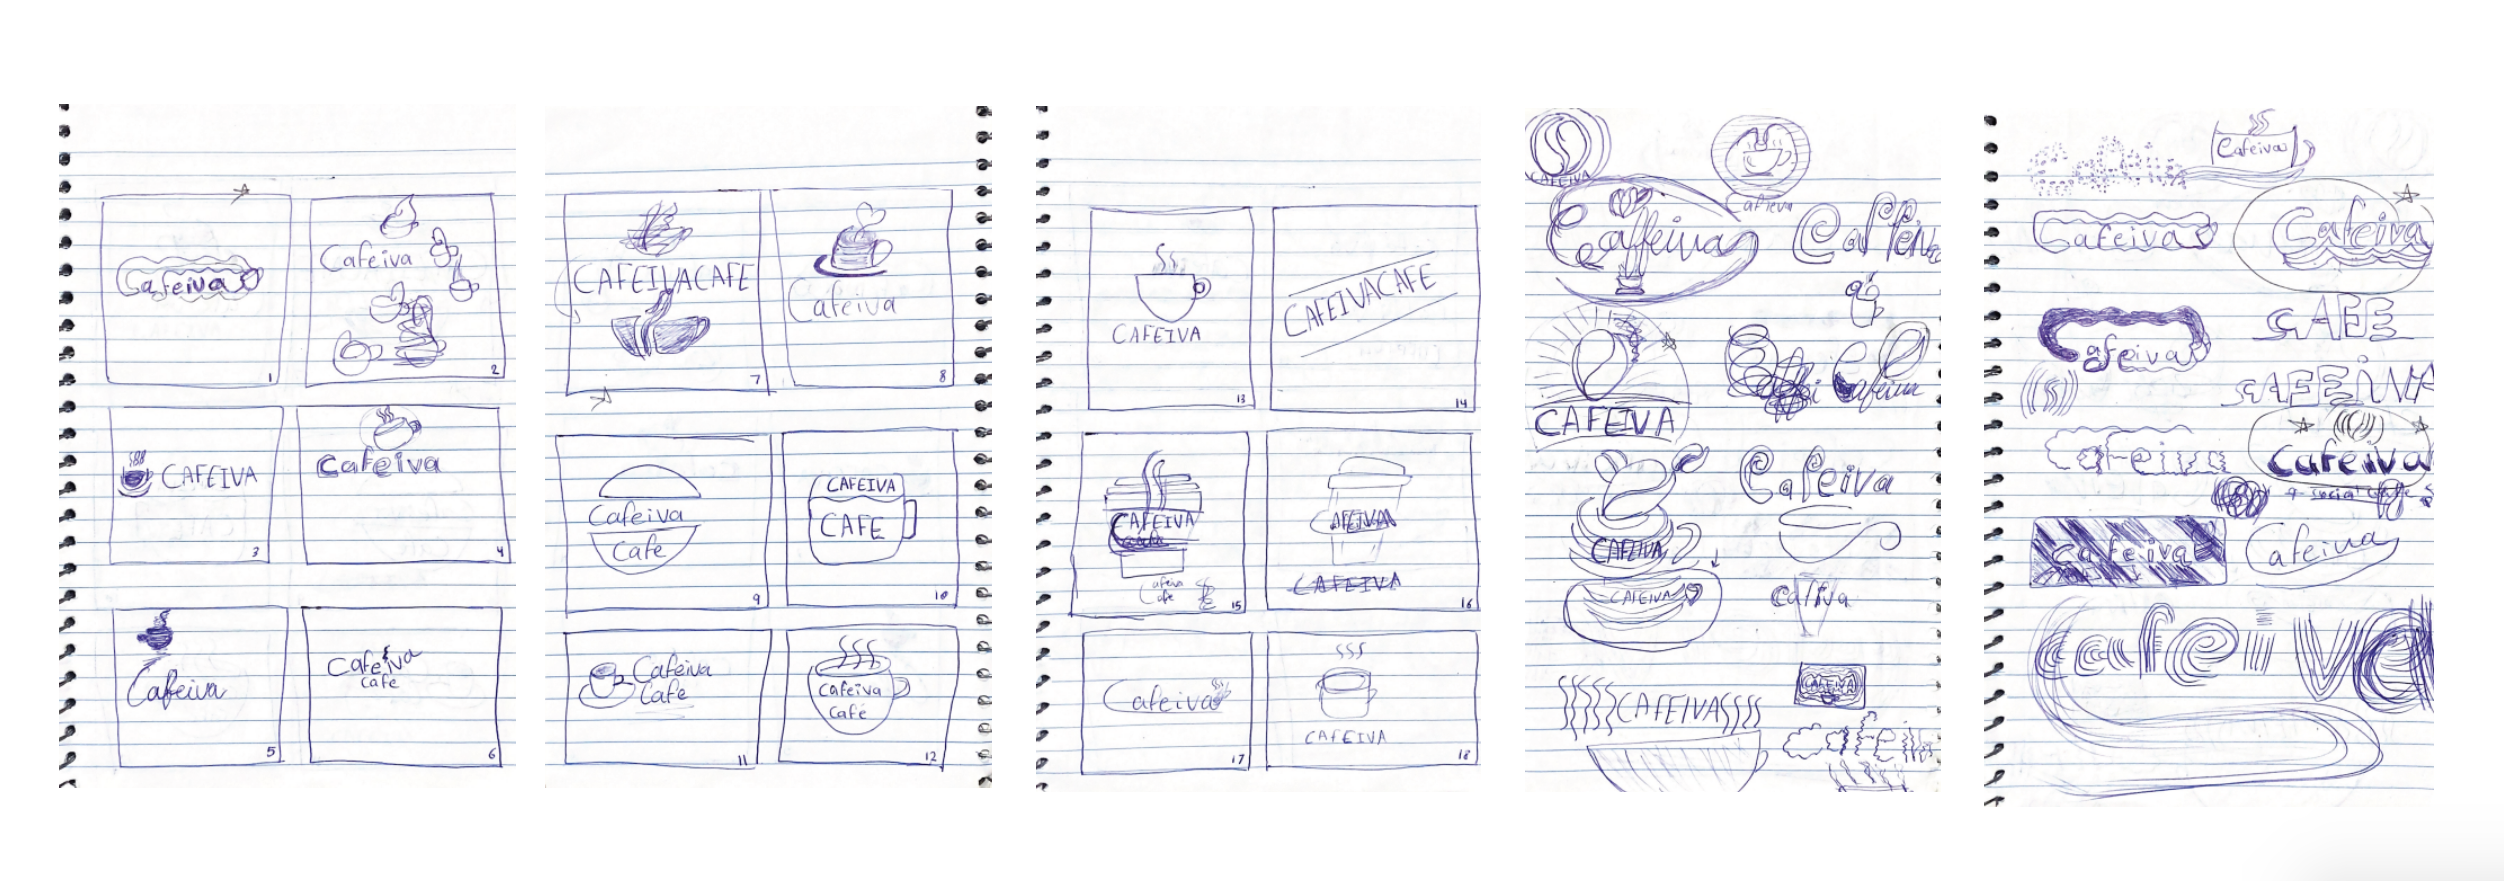 Cafeiva
1
Cafeiva
2
CAFEIVA
3
Cafeiva
4
Cafeiva
5
Cafeiva
Cafe
6
CAFEIVACAFE
7
Cafeiva
8
Cafeiva
Cafe
9
CAFEIVA
CAFE
10
Cafeiva
Cafe
11
Cafeiva
Café
12
CAFEIVA
13
CAFEIVACAFE
14
CAFEIVA
Cafeiva
Cafe
15
CAFEIVA
CAFEIVA
16
Cafeiva
17
CAFEIVA
18
CAFEIVA
Cafieva
Caffeiva
CAFEIVA
Cafeiva
Cafeiva
CAFEIVA
CAFEIVA
CAFEIVA
CAFEIVA
Cafeiva
Cafeiva
Cafeiva
Cafeiva
CAFE
CAFEIVA
Cafeiva
Cafeiva
Cafeiva
Cafeiva
cafeiva